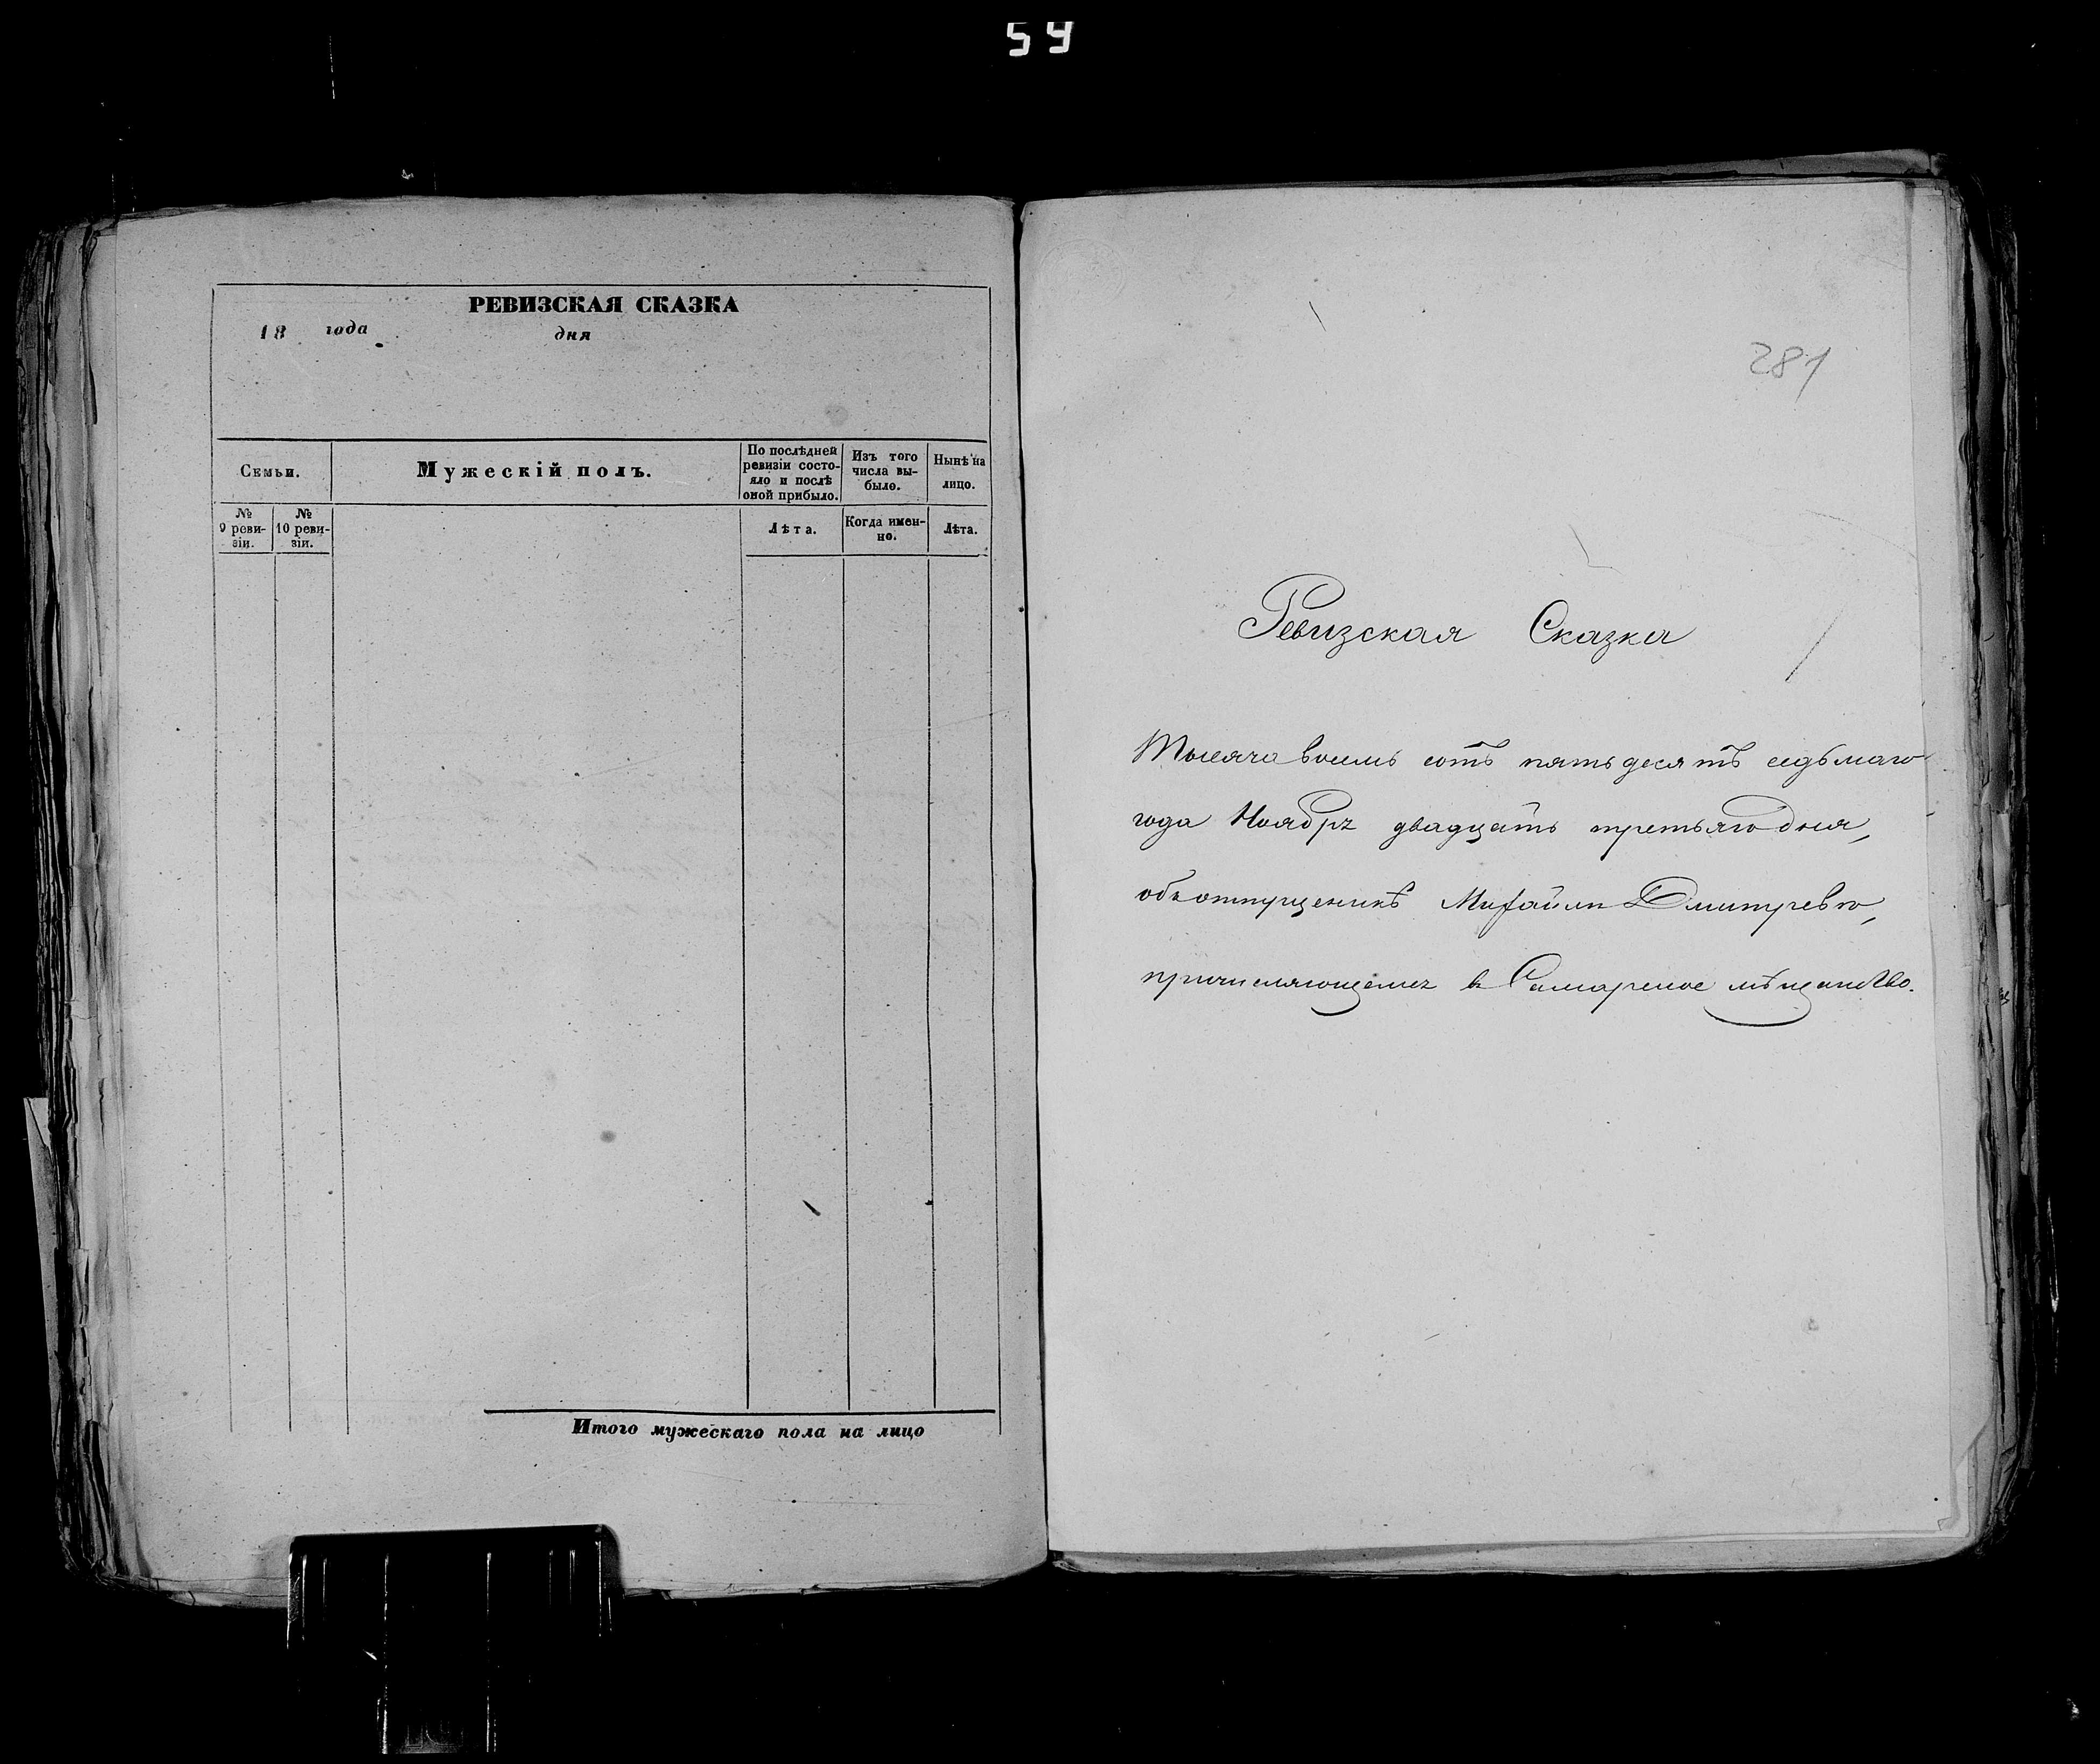 59
РЕВИЗСКАЯ СКАЗКА
18 года дня
Семьи.
Мужескій полъ.
По послѣдней ревизіи состо-
яло и послѣ
оной прибыло.
Изъ того
числа вы-
было.
Нынѣ на
лицо.
№
9 реви-
зіи.
№
10 реви-
зіи.
Лѣта.
Когда имен-
но.
Лѣта.
Итого мужескаго пола на лицо
281
Ревизская Сказка
Тысяча восемь сотъ пятьдесятъ седьмаго
года Ноября двадцать третьяго дня,
объ отпущеникѣ Михайли Дмитревѣ,
причисляющемся в Самарское мѣщанство.